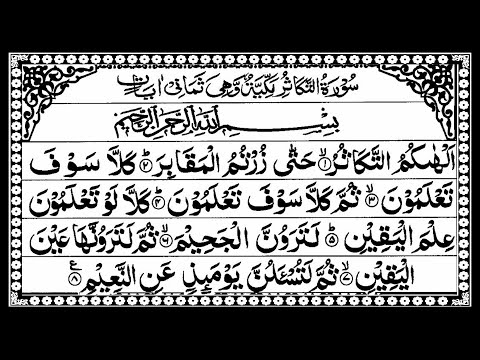 سُوْرَةُ التَّكَاثُرِ مَكِّيَّةٌ وَّهِيَ ثَمَانِيْ اٰيَاتٍ
بِسْمِ اللّٰهِ الرَّحْمٰنِ الرَّحِيْمِ
اَلْهٰىكُمُ التَّكَاثُرُ ۙ‏۱ حَتّٰى زُرْتُمُ الْمَقَابِرَ ؕ‏۲ كَلَّا سَوْفَ
تَعْلَمُوْنَ ۙ‏۳ ثُمَّ كَلَّا سَوْفَ تَعْلَمُوْنَ ؕ‏۴ كَلَّا لَوْ تَعْلَمُوْنَ
عِلْمَ الْيَقِيْنِ ؕ‏۵ لَتَرَوُنَّ الْجَحِيْمَ ۙ‏۶ ثُمَّ لَتَرَوُنَّهَا عَيْنَ
الْيَقِيْنِ ۙ‏۷ ثُمَّ لَتُسْـَٔلُنَّ يَوْمَىِٕذٍ عَنِ النَّعِيْمِ ‏۸ ع